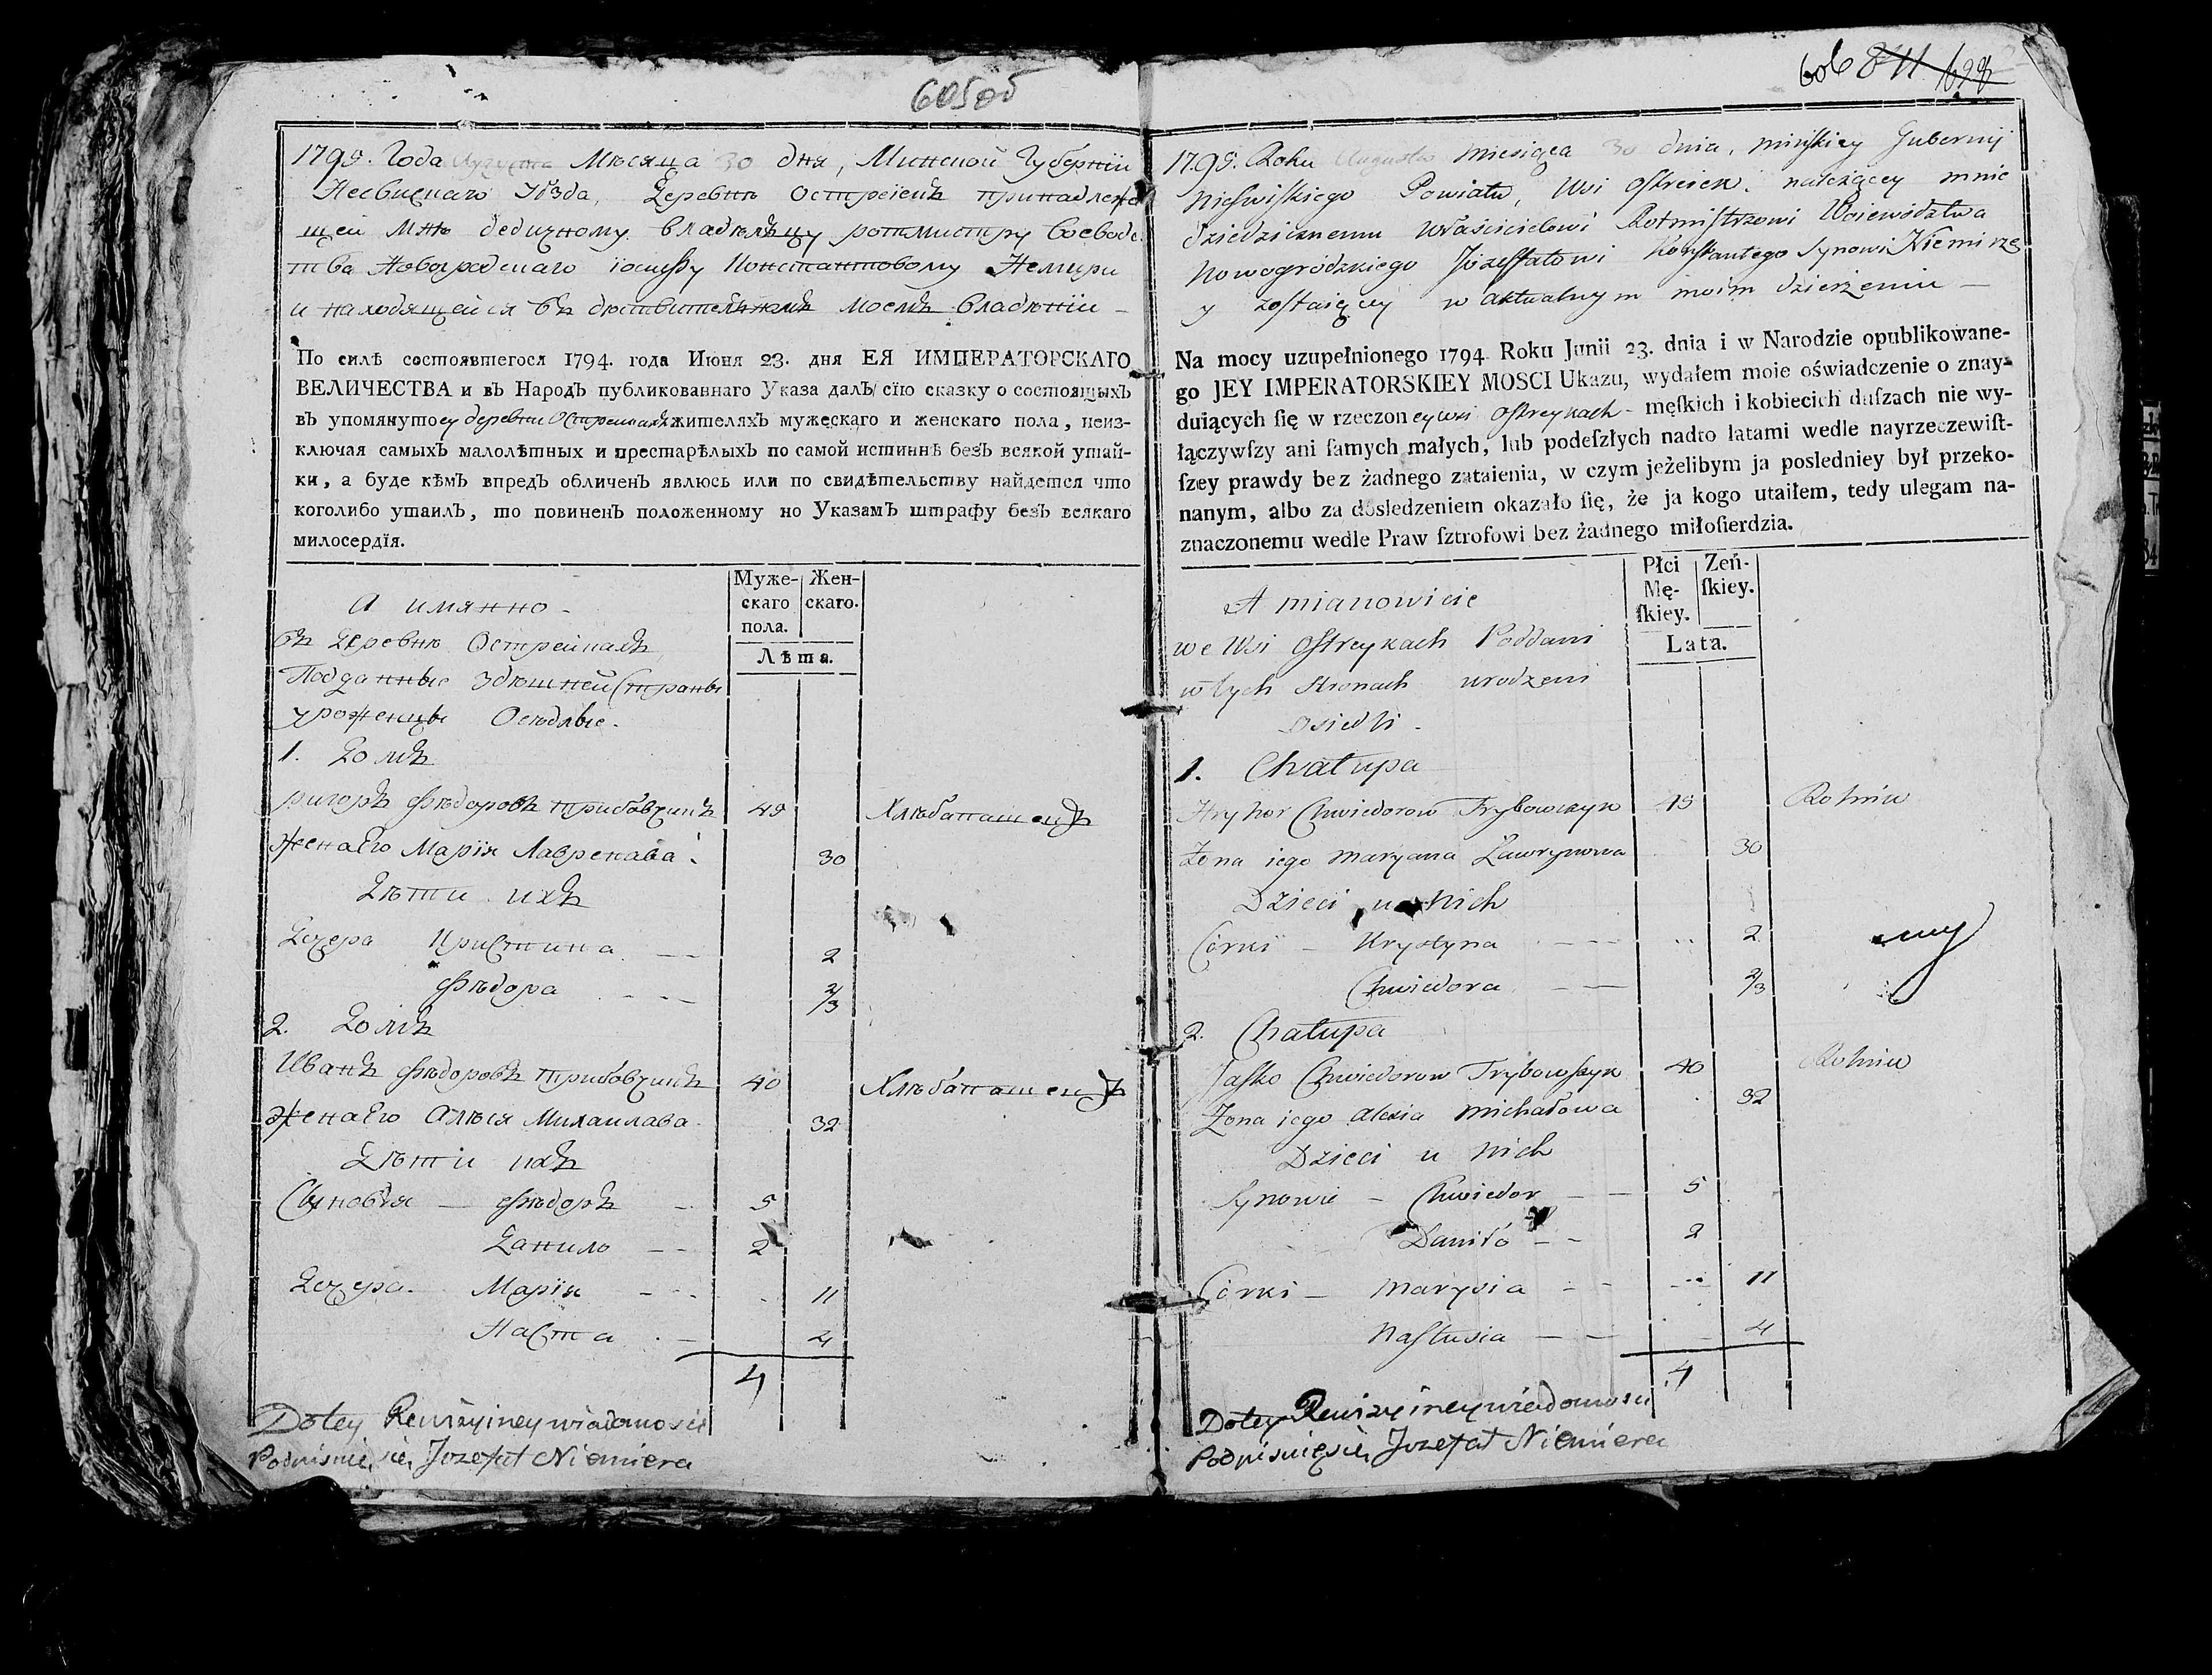 605об
1795. Года Августа Мѣсяца 30 дня, Минской Губернїи
Несвицкаго Уѣзда, Деревнѣ Острейекъ принадлежа
щей мнѣ дедичному владѣлцу ротмистру воевод
тва Новогродскаго їосифу Константовому Немири
и находящейся въ дѣствителномъ моемъ владѣнїи –
По силѣ состоявшегося 1794. года Июня 23. дня ЕЯ ИМПЕРАТОРСКАГО
ВЕЛИЧЕСТВА и въ Народъ публикованнаго Указа далъ сїю сказку о состоящыхъ
въ упомянутоей деревни Острейкахъ жителяхъ мужескаго и женскаго пола, неиз-
ключая самыхъ малолѣтныхъ и престарѣлыхъ по самой истиннѣ безъ всякой утай-
ки, а буде кѣмъ впредъ обличенъ явлюсь или по свидѣтельству найдется что
коголибо утаилъ, то повиненъ положенному по Указамъ штрафу безъ всякаго
милосердїя.
Муже-скаго пола. Жен-скаго.
Лѣта.
А имянно –
въ Деревнѣ Острейкахъ
Подданные здѣшней Страны
уроженцы Осѣдлые.
1. Домъ
ригоръ Фѣдоровъ трибовчикъ 45 Хлѣбапашецъ
жена Его Марїя Лавренава 30
Дѣти ихъ
Дочера Кристина 2
Фѣдора 2/3
2. Домъ
Иванъ Фѣдоровъ трибовчикъ 40 Хлѣбапашецъ
жена Его Алѣся Михаилава 32
Дѣти ихъ
Сыновья – Фѣдоръ 5
Данило 2
Дочера. Марїя 11
Наста 4
4
Dotey Rewizyiney wiadomosci
Podpisuię się Jozefat Niemiera
606 811 628
1795. Roku Augusta miesięca 30 dnia, minſkiey Gubernij
Nieſwiſkiego Powiatu, Wsi Oſtreiek, należącey mnie
dziedzicznemu właścicielowi Rotmiſtrzowi Woiewództwa
Nowogródzkiego Józeffatowi Konſtantego Synowi Niemirze
y zoſtaiącey w aktualnym moim dzierżeniu –
Na mocy uzupełnionego 1794 Roku Junii 23. dnia i w Narodzie opublikowane-
go JEY IMPERATORSKIEY MOSCI Ukazu, wydałem moie oświadczenie o znay-
duiących ſię w rzeczoney wsi Oſtreykach – męſkich i kobiecich duſzach nie wy-
łączywſzy ani ſamych małych, lub podeſzłych nadto latami wedle nayrzeczewiſt-
ſzey prawdy bez żadnego zataienia, w czym jeżelibym ja posledniey był przeko-
nanym, albo za dosledzeniem okazało ſię, że ja kogo utaiłem, tedy ulegam na-
znaczonemu wedle Praw ſztrofowi bez żadnego miłoſierdzia.
Płci Mę-ſkiey. Żeń-ſkiey.
Lata.
A mianowicie
we Wsi Oſtreykach Poddani
w tych stronach urodzeni
osiedli –
1. Chałupa
Hryhor Chwiedorow Trybowczyk 45 Rolnik
Żona iego Maryana Ławrynowa 30
Dzieci u nich
Córki – Krystyna 2
Chwiedora 2/3
2. Chałupa
Jaſko Chwiedorow Trybowſzyk 40 Rolnik
Żona iego Alexia Michałowa 32
Dzieci u nich
Synowie – Chwiedor 5
Daniło 2
Córki – Marysia 11
Naſtusia 4
4
Dotey Rewizyiney wiadomosci
Podpisuięsię Jozefat Niemiera